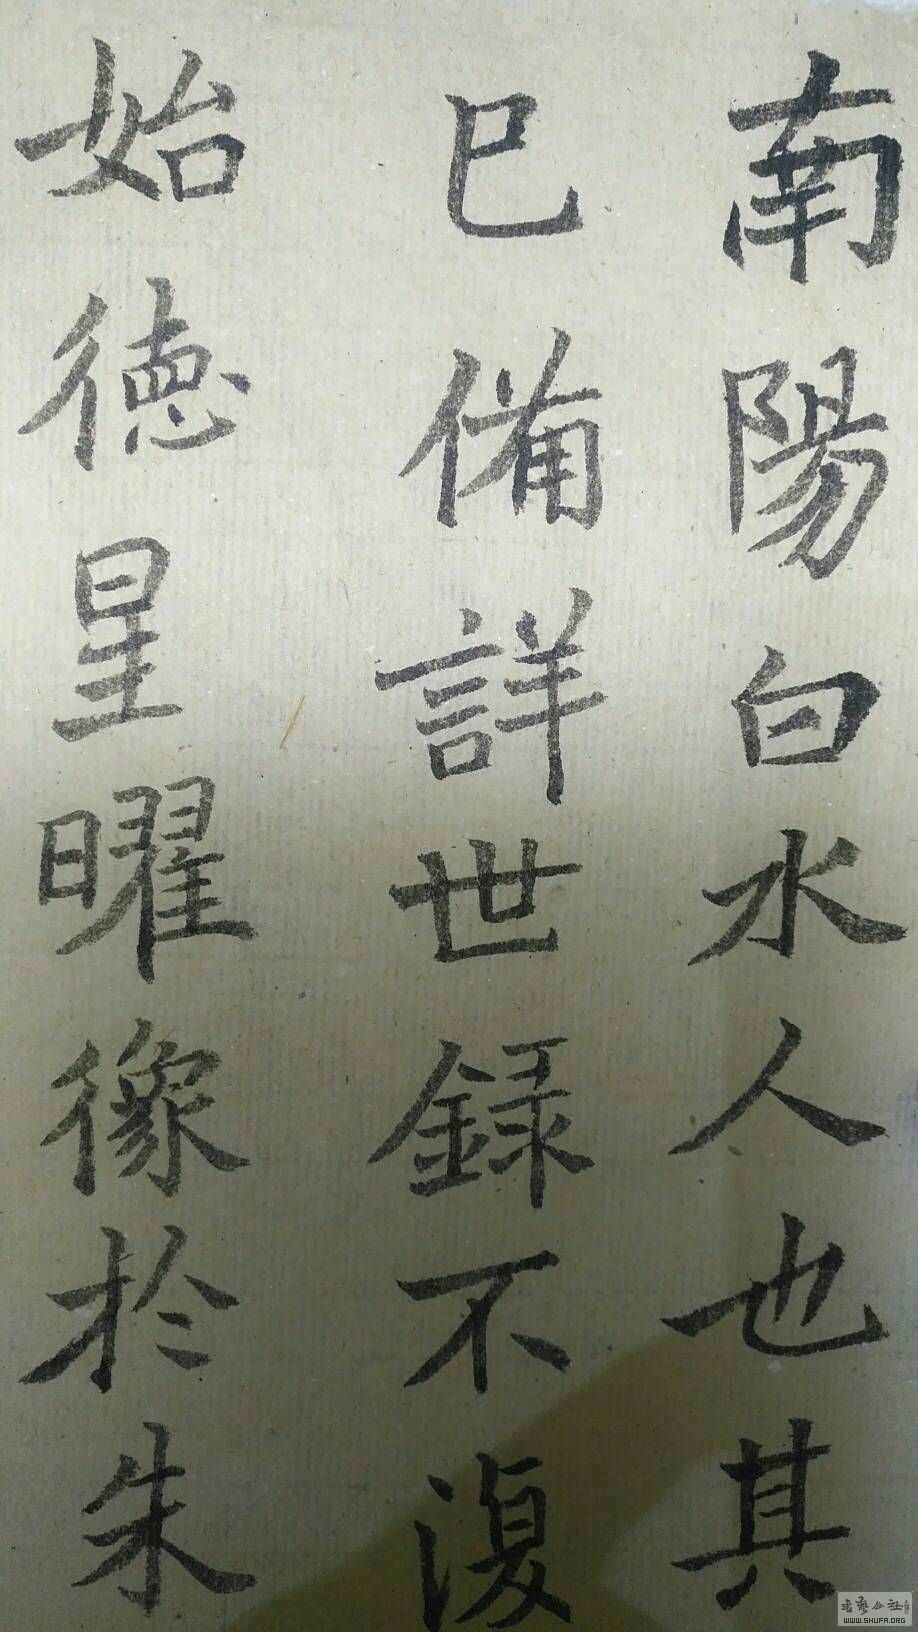 南陽白水人也其
已備詳世録不復
始徳星曜像於朱
書藝公社
WWW.SHUFA.ORG